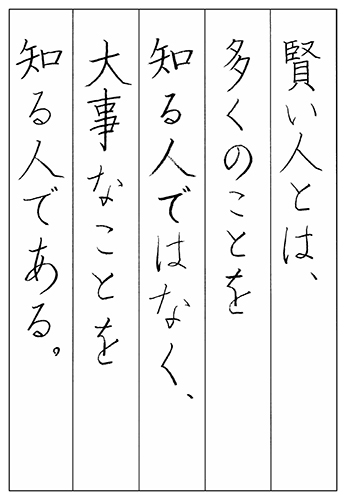 賢い人とは、
多くのことを
知る人ではなく、
大事なことを
知る人である。